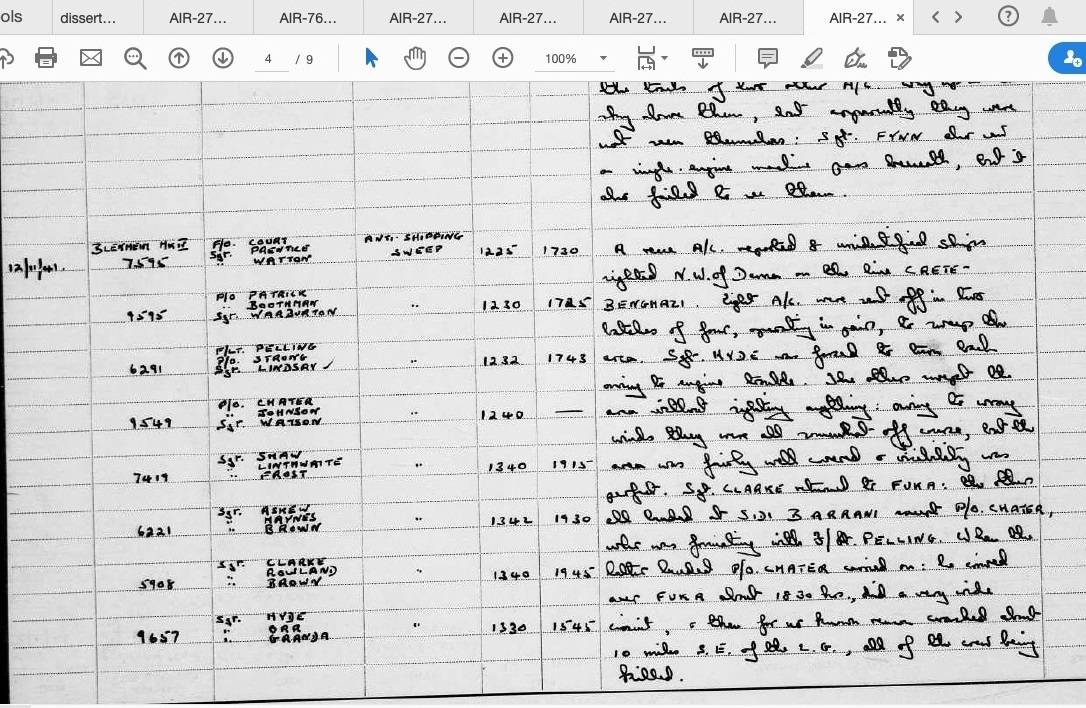 ols dissert... AIR-27... AIR-76... AIR-27... AIR-27... AIR-27... AIR-27... AIR-27... ×
4 / 9 100%
the trails of two other A/C
sky above them, but apparently they were
not seen themselves: Sgt. FYNN also saw
a single-engine machine pass beneath, but it
also failed to see them.
12/11/41. BLENHEIM MK IV 7595 F/O. COURT ANTI-SHIPPING SWEEP 1225 1730
PRENTICE
Sgt. WATTON
9595 P/O PATRICK " 1230 1725
BOOTHMAN
Sgt. WARBURTON
6291 F/LT. PELLING " 1232 1743
P/O. STRONG
Sgt. LINDSAY ✓
9549 P/O. CHATER " 1240 —
" JOHNSON
Sgt. WATSON
7419 Sgt. SHAW " 1340 1915
" LINTHWAITE
" FROST
6221 Sgt. ASKEW " 1342 1930
" HAYNES
" BROWN
5908 Sgt. CLARKE " 1340 1945
" ROWLAND
" BROWN
9657 Sgt. HYDE " 1330 1545
" ORR
" GRANDA
A recce A/C. reported 8 unidentified ships
sighted N.W. of Derna on the line CRETE-
BENGHAZI. Eight A/C. were sent off in two
batches of four, operating in pairs, to sweep the
area. Sgt. HYDE was forced to turn back
owing to engine trouble. The others swept the
area without sighting anything: owing to wrong
winds they were all somewhat off course, but the
area was fairly well covered & visibility was
perfect. Sgt. CLARKE returned to FUKA: the others
all landed at SIDI BARRANI except P/O. CHATER,
who was formating with F/Lt. PELLING. When the
latter landed P/O. CHATER carried on: he circled
over FUKA about 1830 hrs., did a very wide
circuit, & then for no known reason crashed about
10 miles S.E. of the L.G., all of the crew being
killed.